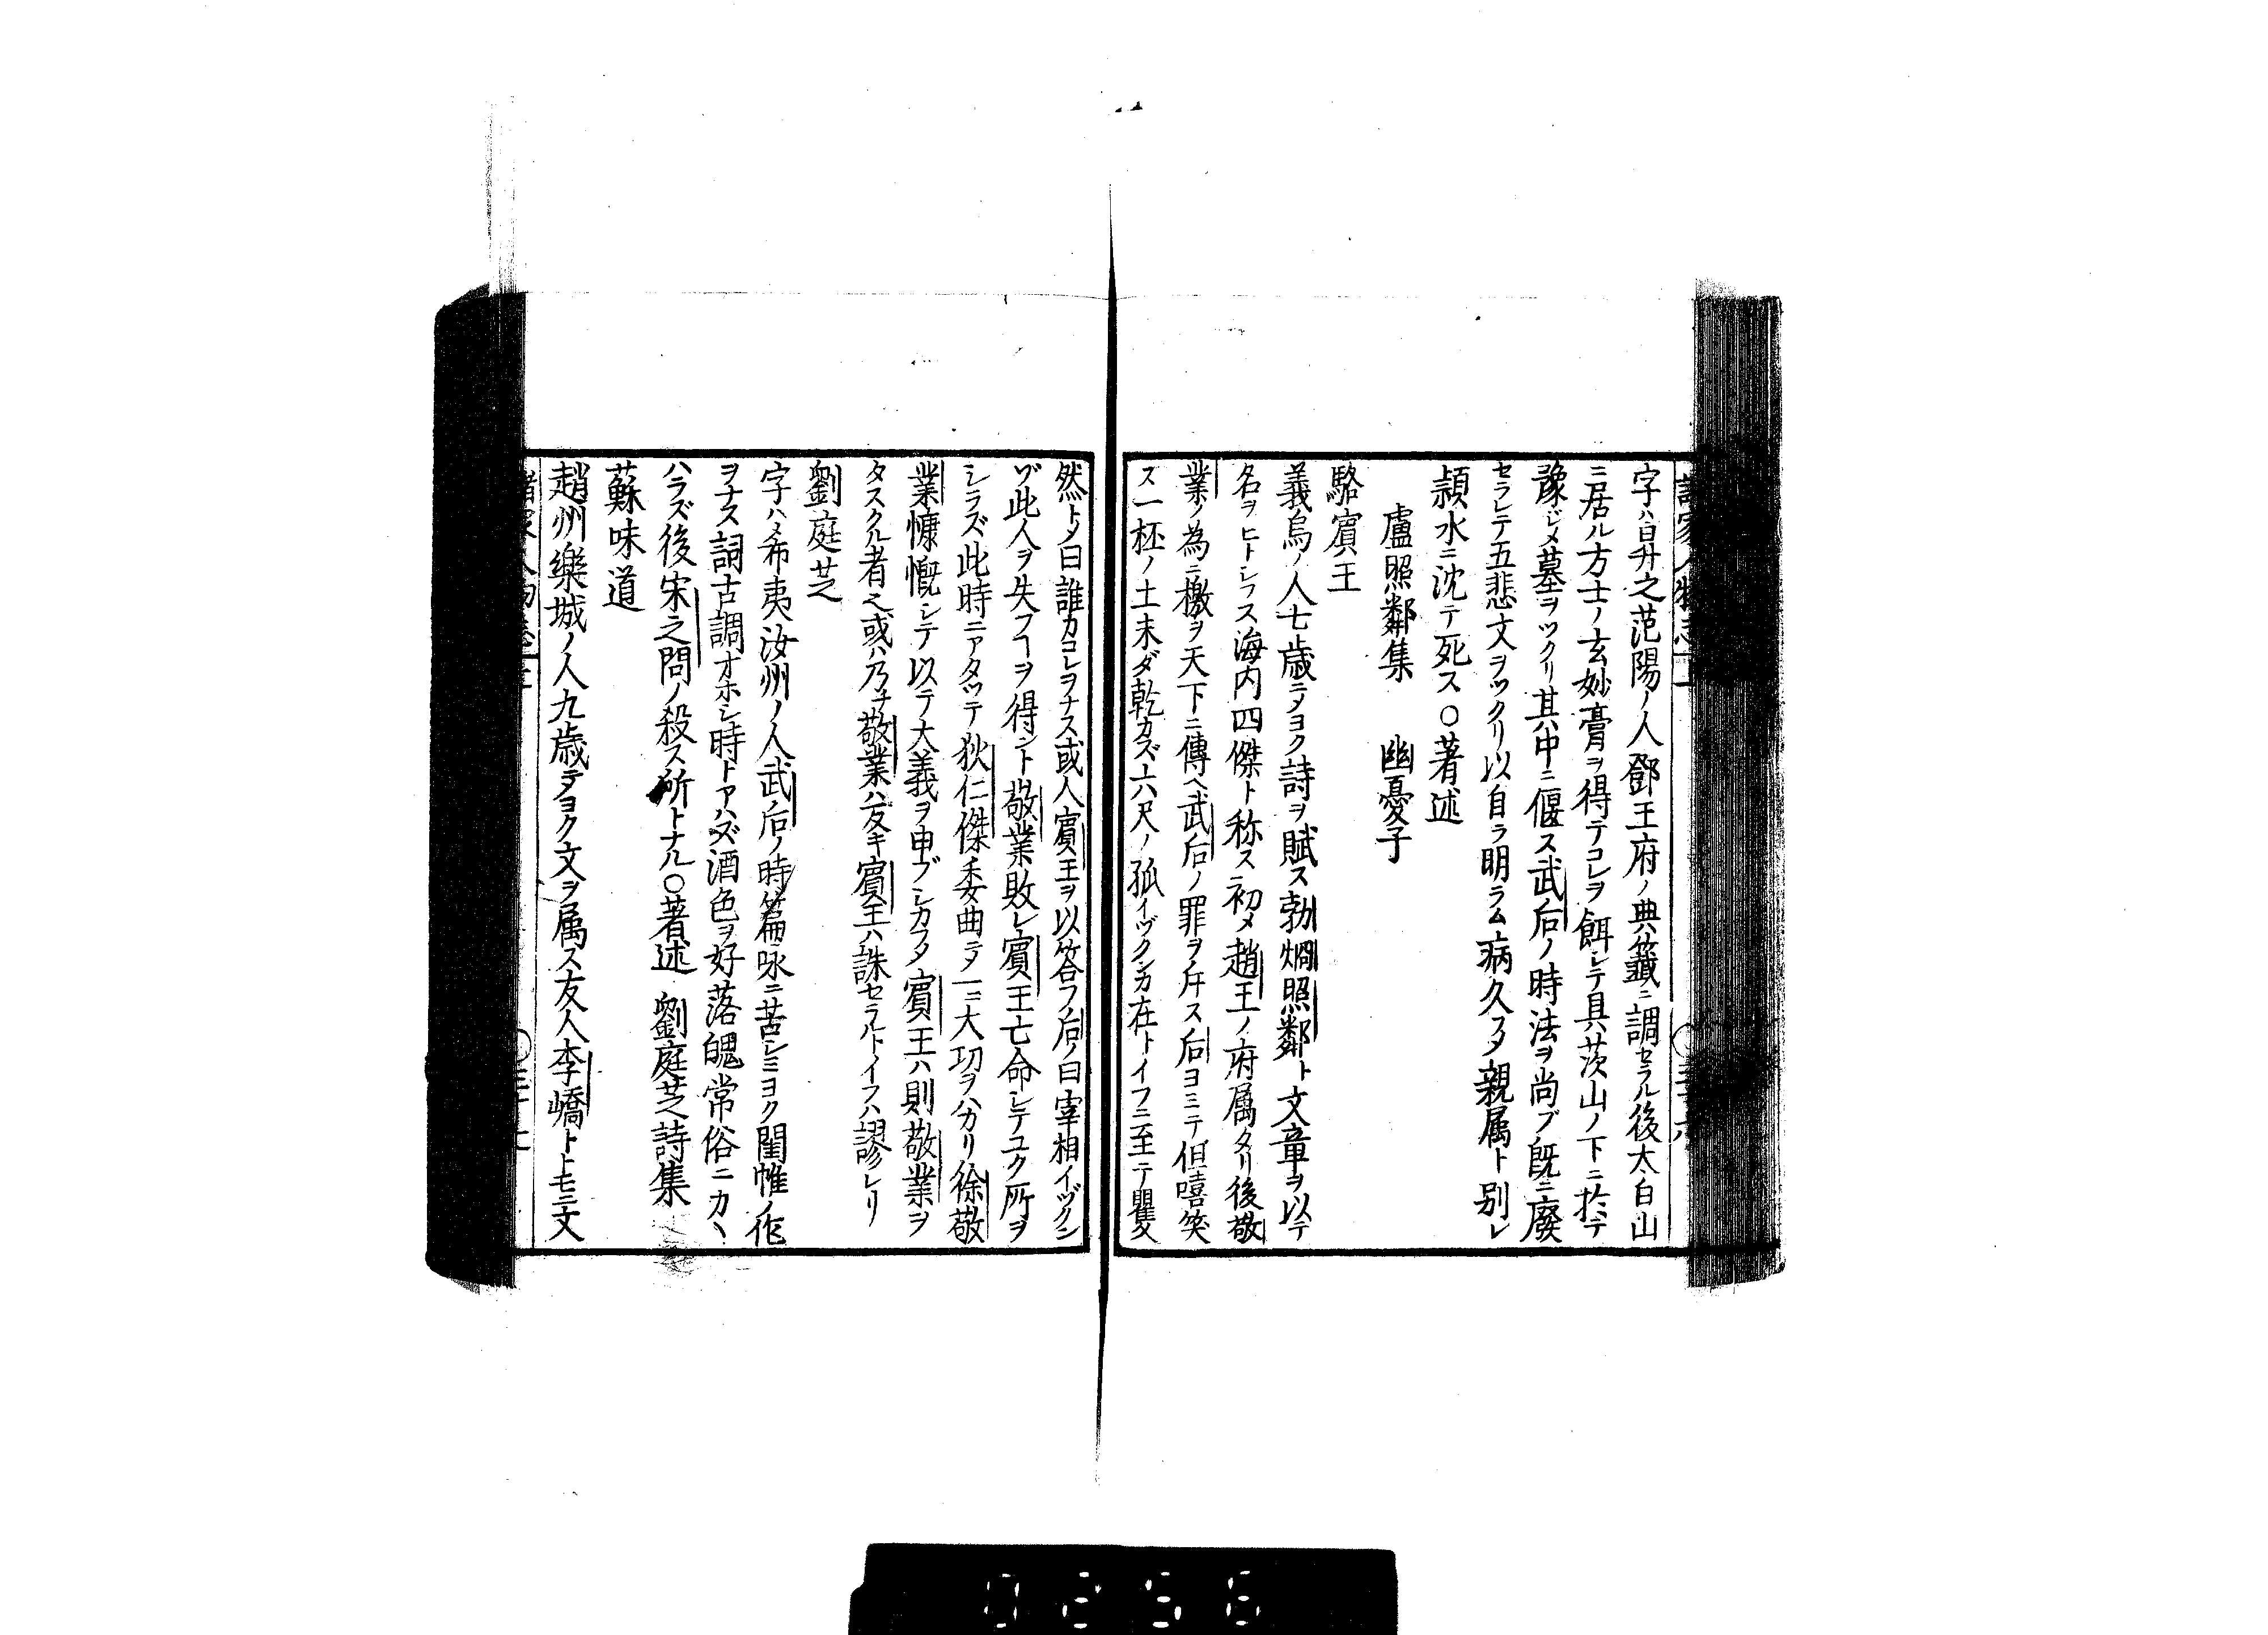 字ハ日升之范陽ノ人鄧王府ノ典籤ニ調セラル後太白山
ニ居ル方士ノ玄妙膏ヲ得テコレヲ餌シテ具茨山ノ下ニ於テ
豫ジメ墓ヲツクリ其中ニ偃ス武后ノ時法ヲ尚ブ既ニ廢
セラレテ五悲文ヲツクリ以自ラ明ラム病久フメ親属ト别レ
潁水ニ沈テ死ス○著述
盧照鄰集 幽憂子
駱賓王
義烏ノ人七歳ニメヨク詩ヲ賦ス勃烱照鄰ト文章ヲ以テ
名ヲヒトシフス海内四傑ト称ス初メ趙王ノ府属タリ後敬
業ノ為ニ檄ヲ天下ニ傳ヘ武后ノ罪ヲ斥ス后ヨミテ但嘻笑
ス一杯ノ土未ダ乾カズ六尺ノ孤イヅクンカ在トイフニ至テ矍
然トメ曰誰カコレヲナス或人賓王ヲ以答フ后ノ曰宰相イヅクン
ゾ此人ヲ失フヿヲ得ント敬業敗レ賓王亡命シテユク所ヲ
シラズ此時ニアタツテ狄仁傑委曲ニメ一ニ大功ヲハカリ徐敬
業慷慨シテ以テ大義ヲ申ブシカフメ賓王ハ則敬業ヲ
タスクル者之或ハ乃チ敬業ハ友キ賓王ハ誅セラルトイフハ謬レリ
劉庭芝
字ハ希夷汝州ノ人武后ノ時篇咏ニ苦シミヨク閨帷ノ作
ヲナス詞古調オホシ時トアハズ酒色ヲ好落魄常俗ニカヽ
ハラズ後宋之問ノ殺ス所トナル○著述 劉庭芝詩集
蘇味道
趙州欒城ノ人九歳テヨク文ヲ属ス友人李嶠トトモニ文